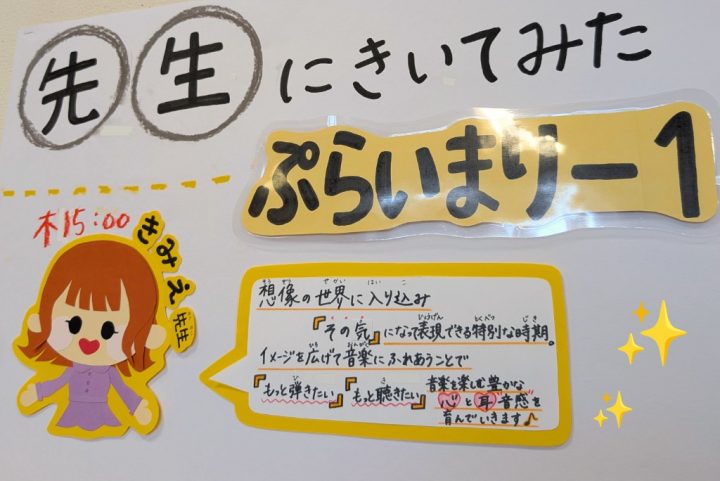 先生にきいてみた
ぷらいまりー1
木15:00
きみえ先生
想像の世界に入り込み
『その気』になって表現できる特別な時期。
イメージを広げて音楽にふれあうことで
『もっと弾きたい』『もっと聴きたい』
音楽を楽しむ豊かな
心と耳、音感を
育んでいきます♪